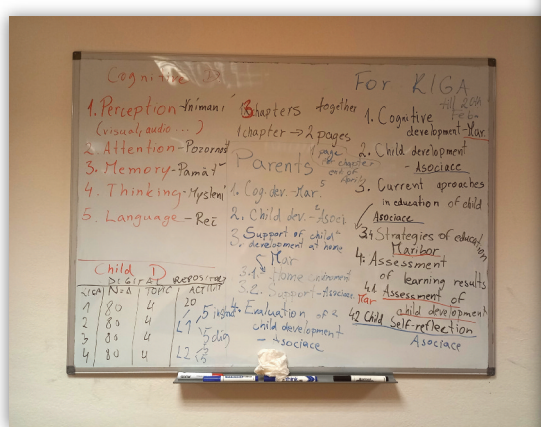 Cognitive
1. Perception - Vnimani
(visual, audio ...)
2. Attention - Pozornost
3. Memory - Pamäť
4. Thinking - Mysleni
5. Language - Reč
Child
DIGITAL REPOSITORY
TOPIC
1 80 4 20
2 80 4 L1
3 80 4
4 80 4 L2
3 chapters together
1 chapter → 2 pages
1 page
Parents
1. Cog. dev. - Mar.
2. Child dev. - Asoci.
3. Support of child
development at home
Mar
3.1 Home
3.2. Support - Asociace
4. Evaluation of
child development
- Asociace
For RIGA
till 20th
Feb.
1. Cognitive
development - Mar.
2. Child development
- Asociace
3. Current aproaches
in education of child
Asociace
3.1 Strategies of education
Maribor
4. Assessment
of learning results
Mar 4.1 Assessment of
child development
4.2 Child Self-reflection
Asociace